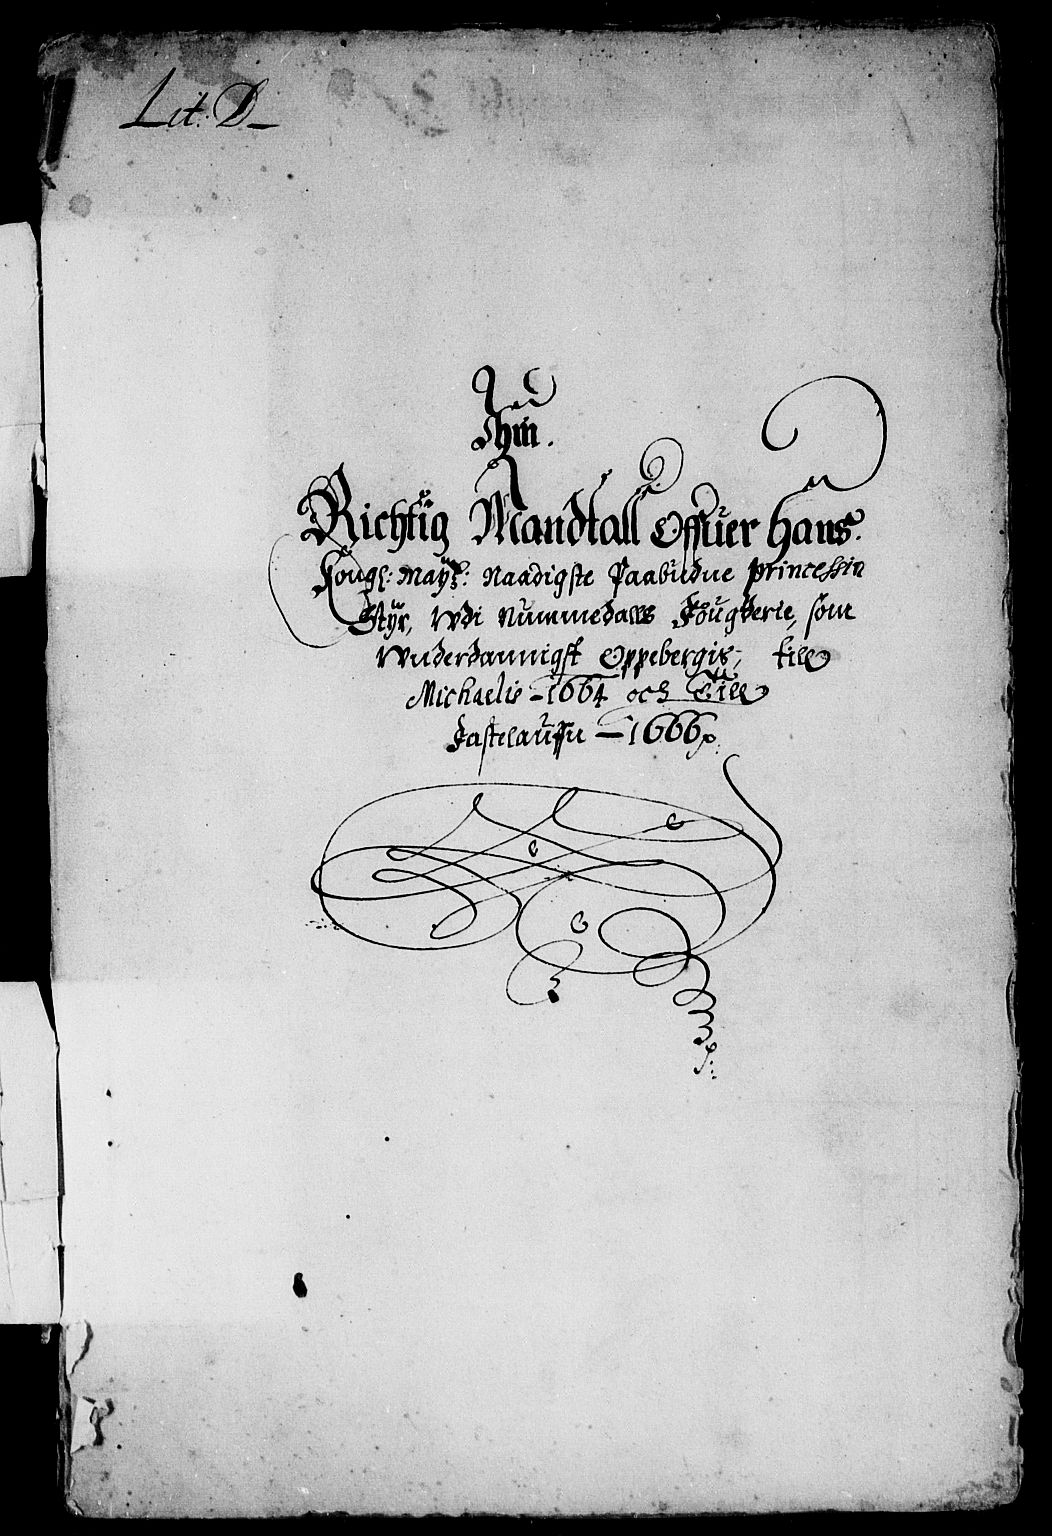 Lit: D
Een
Richtig Mandtall Offuer Hans
Kongl: Mayst: Naadigste Paabudne Princessin
Styr, Wdi Nummedals Fougderie, som
Wnderdannigst Oppebergis, till
Michaelis - 1664 och Till
Fastelauffn - 1666